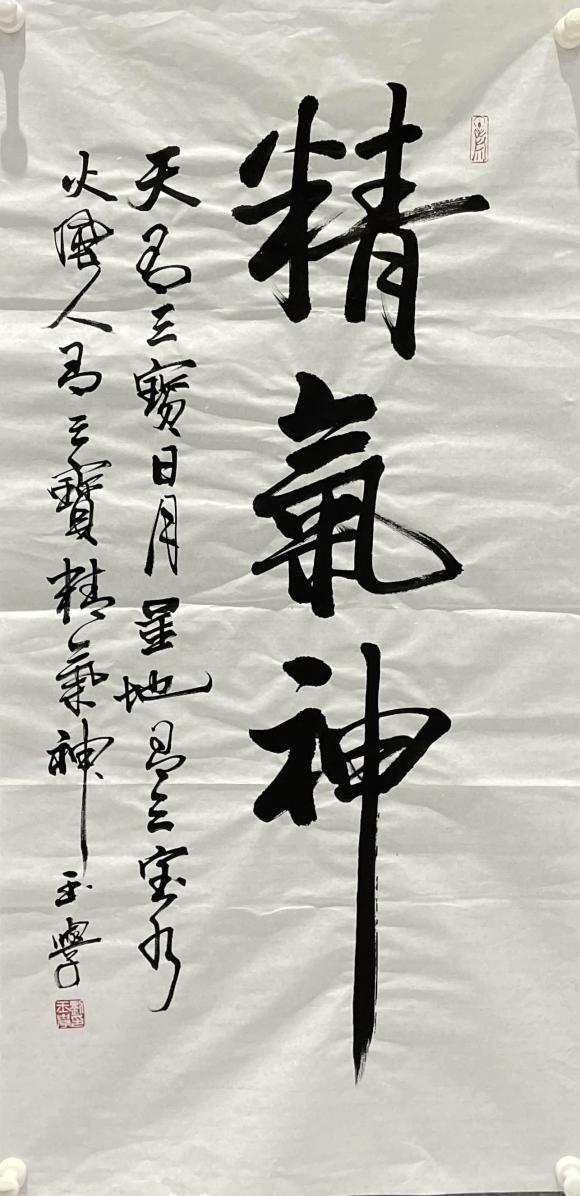 精氣神
天有三寶日月星地有三宝水
火風人有三寶精氣神
玉學